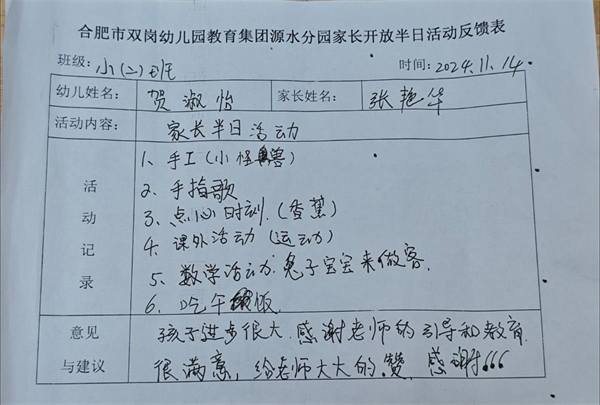 合肥市双岗幼儿园教育集团源水分园家长开放半日活动反馈表
班级：小（二）班 时间：2024.11.14
幼儿姓名： 贺淑怡 家长姓名： 张艳华
活动内容： 家长半日活动
活动记录
1、手工（小怪兽）
2、手指歌
3、点心时刻.（香蕉）
4、课外活动（运动）
5、数学活动.兔子宝宝来做客.
6、吃午饭
意见与建议
孩子进步很大.感谢老师的引导和教育.
很满意，给老师大大的.赞.感谢!!!